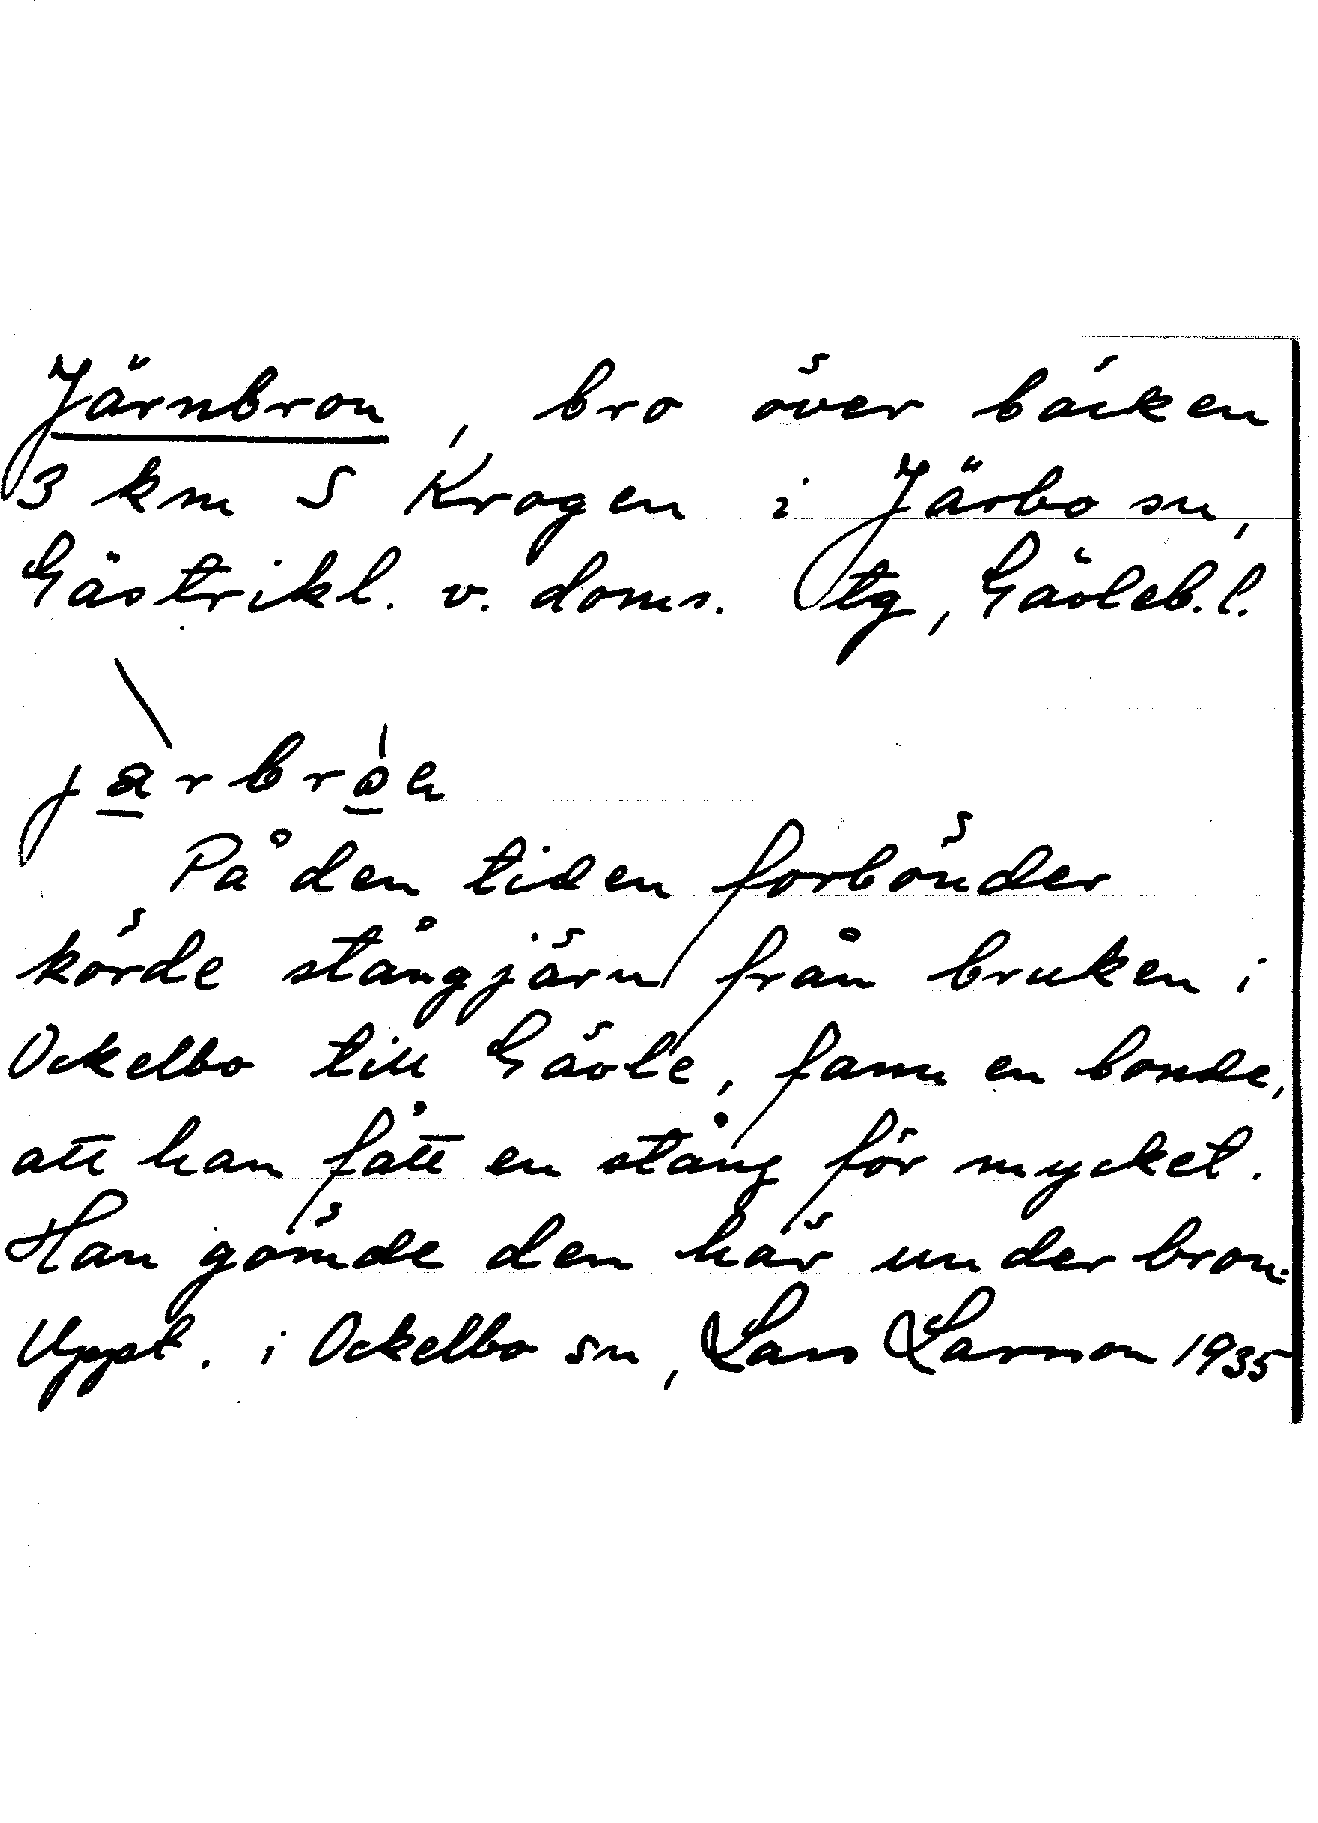 Järnbron, bro över bäcken
3 km S Krogen i Järbo sn,
Gästrikl. v. doms. tg, Gävleb.l.
järbrón
På den tiden forbönder
körde stångjärn från bruken i
Ockelbo till Gävle, fann en bonde,
att han fått en stång för mycket.
Han gömde den här under bron.
Uppt. i Ockelbo sn, Lars Larsson 1935